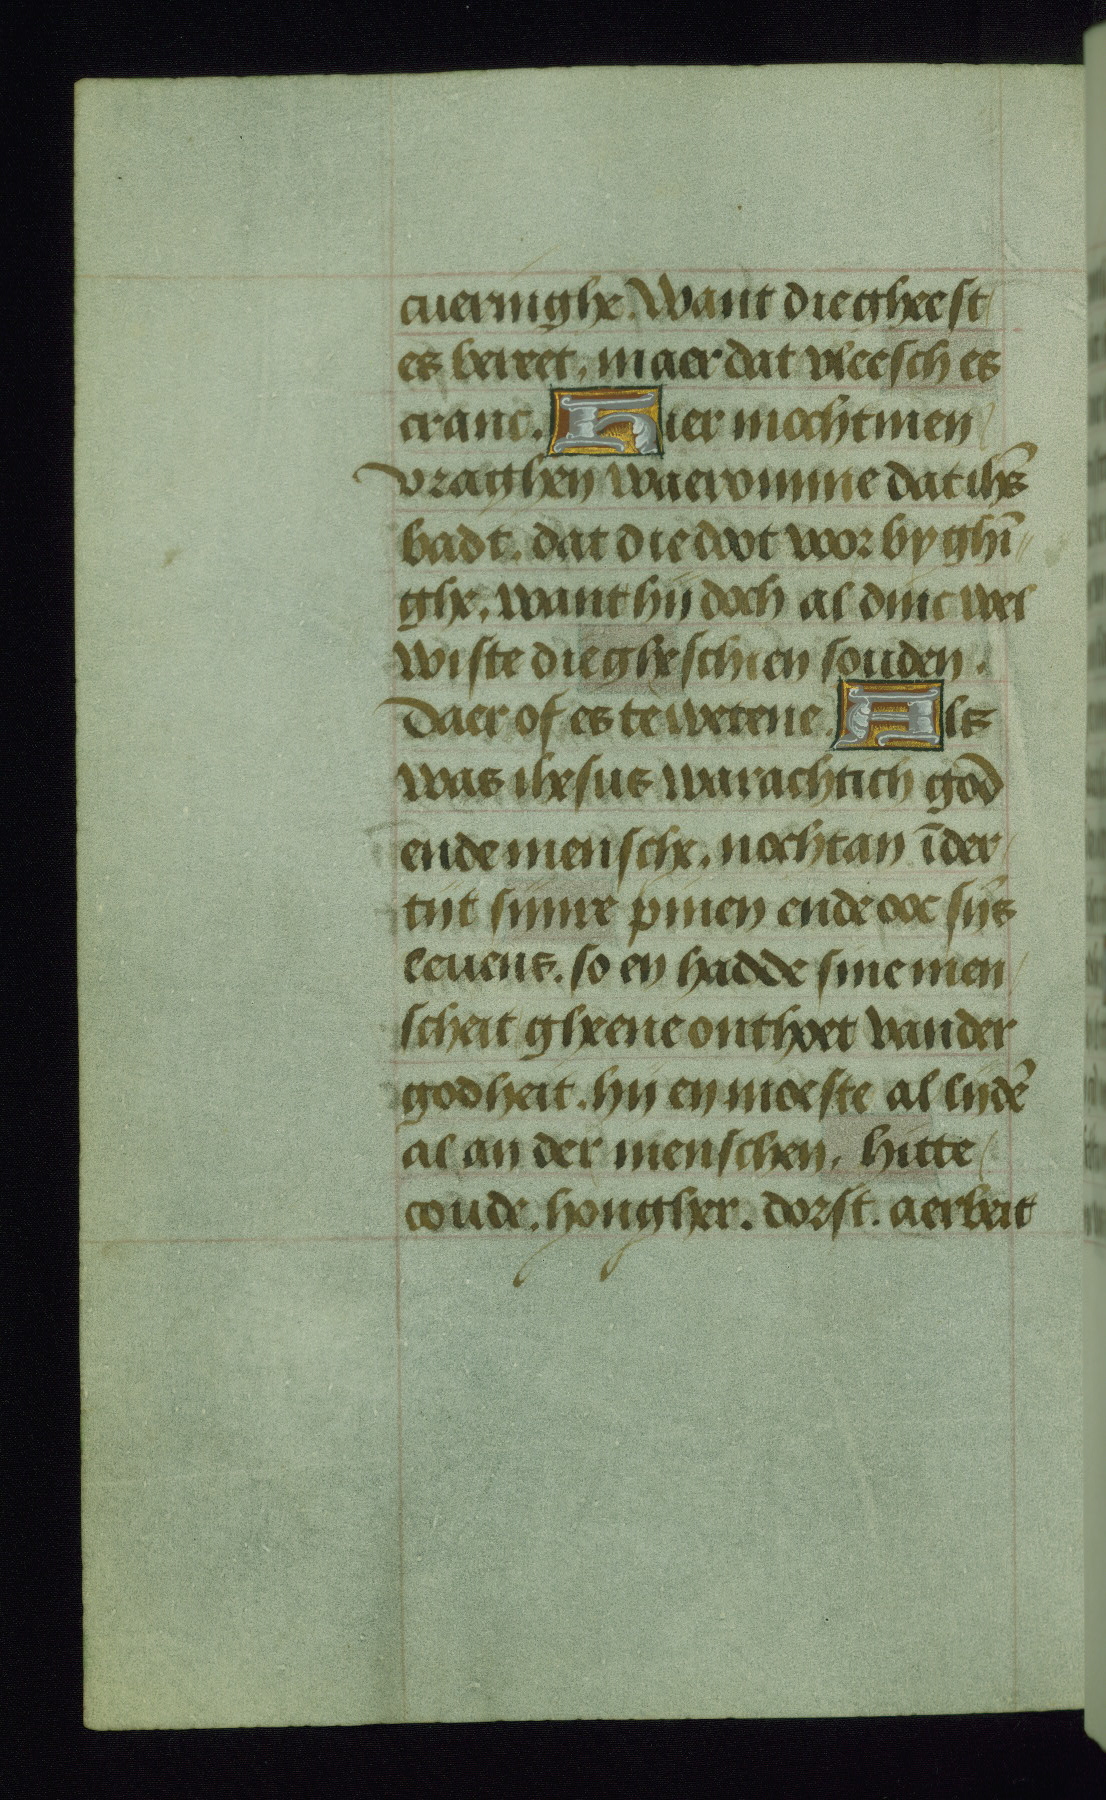 cueringhe. Want die gheest
es bereet, maer dat vleesch es
cranc. Hier mochtmen
vraghen waeromme dat ihs̄
badt. dat die doot voor by ghī
ghe, want hij doch al dinc wel
wiste die gheschien souden.
Daer of es te wetene. Als
was ihesus warachtich god
ende mensche, nochtan īder
tijt sijnre pinen ende ooc sijs
leuens. so en hadde sine men
scheit gheene onthoet vander
godheit. hij en moeste al lijdē
al an der menschen, hitte
coude, hongher. dorst. aerbeit